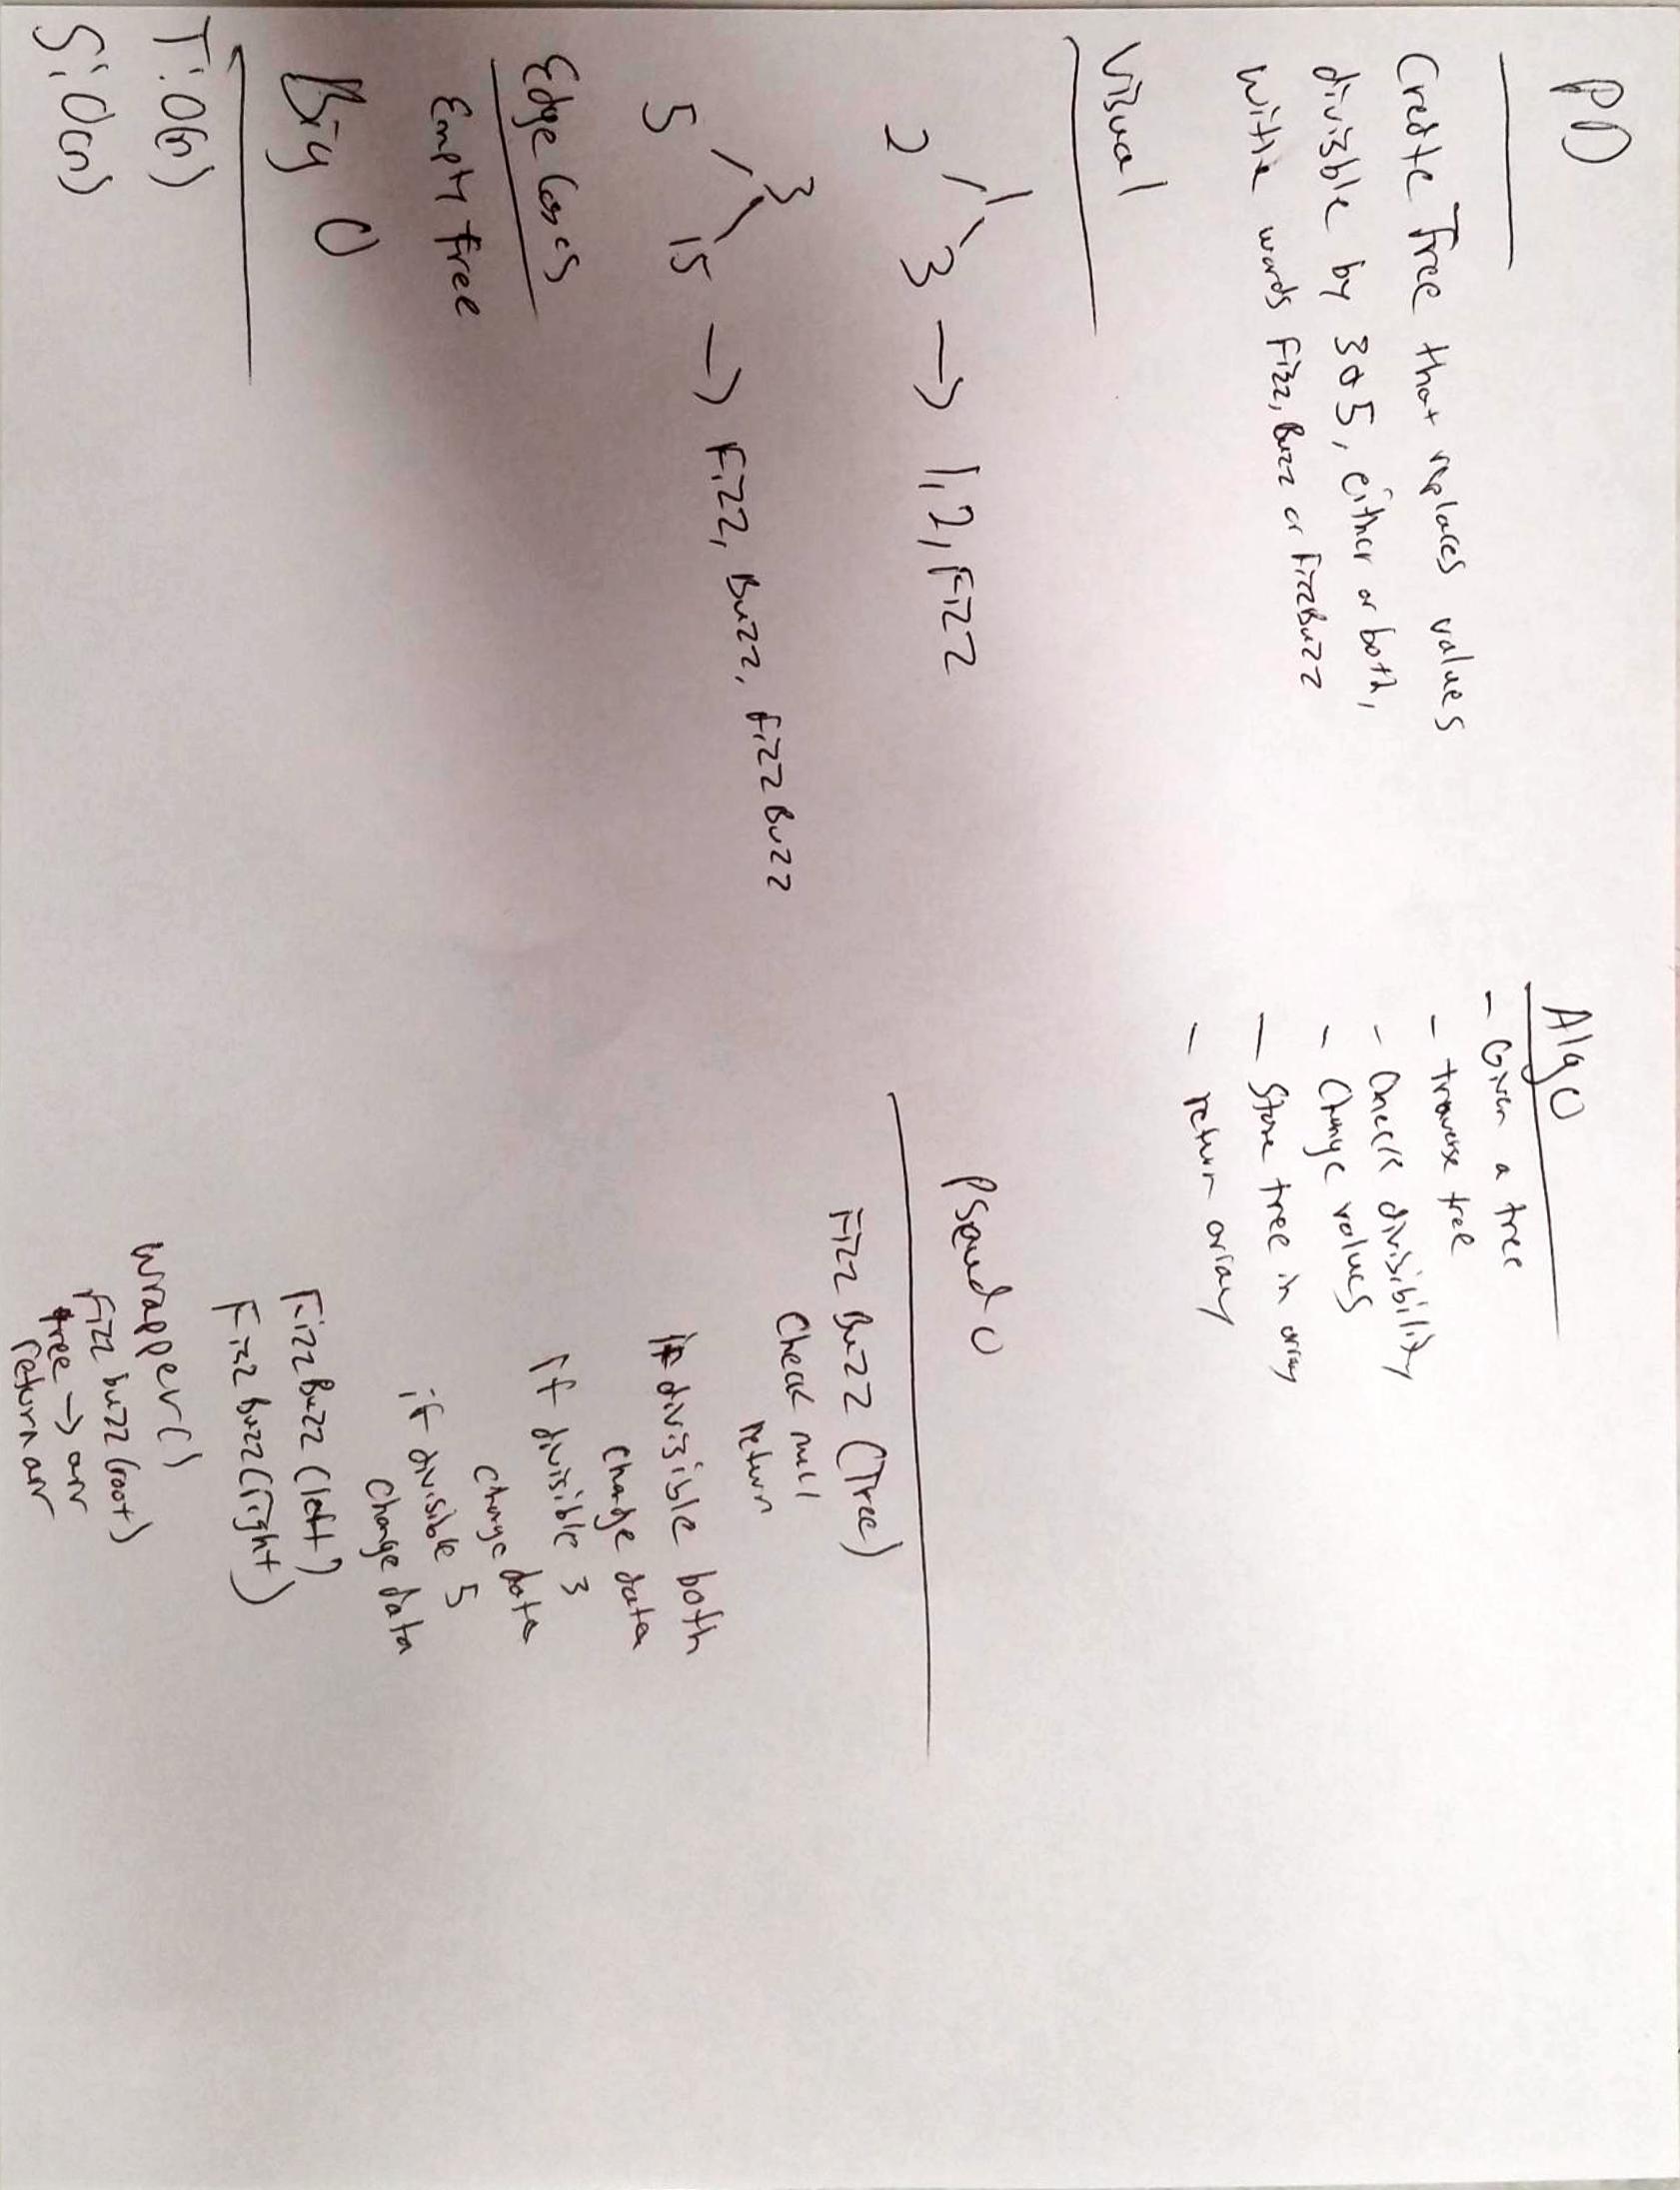 PD
Create Tree that replaces values
divisible by 3 or 5, either or both,
with words Fizz, Buzz or FizzBuzz
Visual
1
2 3 → 1,2,Fizz
3
5 15 → Fizz, Buzz, FizzBuzz
Edge Cases
Empty tree
Big O
T: O(n)
S: O(n)
Algo
- Given a tree
- traverse tree
- Check divisibility
- Change values
- Store tree in array
- return array
Pseudo
FizzBuzz (Tree)
Check null
return
if divisible both
change data
if divisible 3
change data
if divisible 5
change data
FizzBuzz (left)
FizzBuzz (right)
wrapper()
Fizzbuzz (root)
tree → arr
return arr